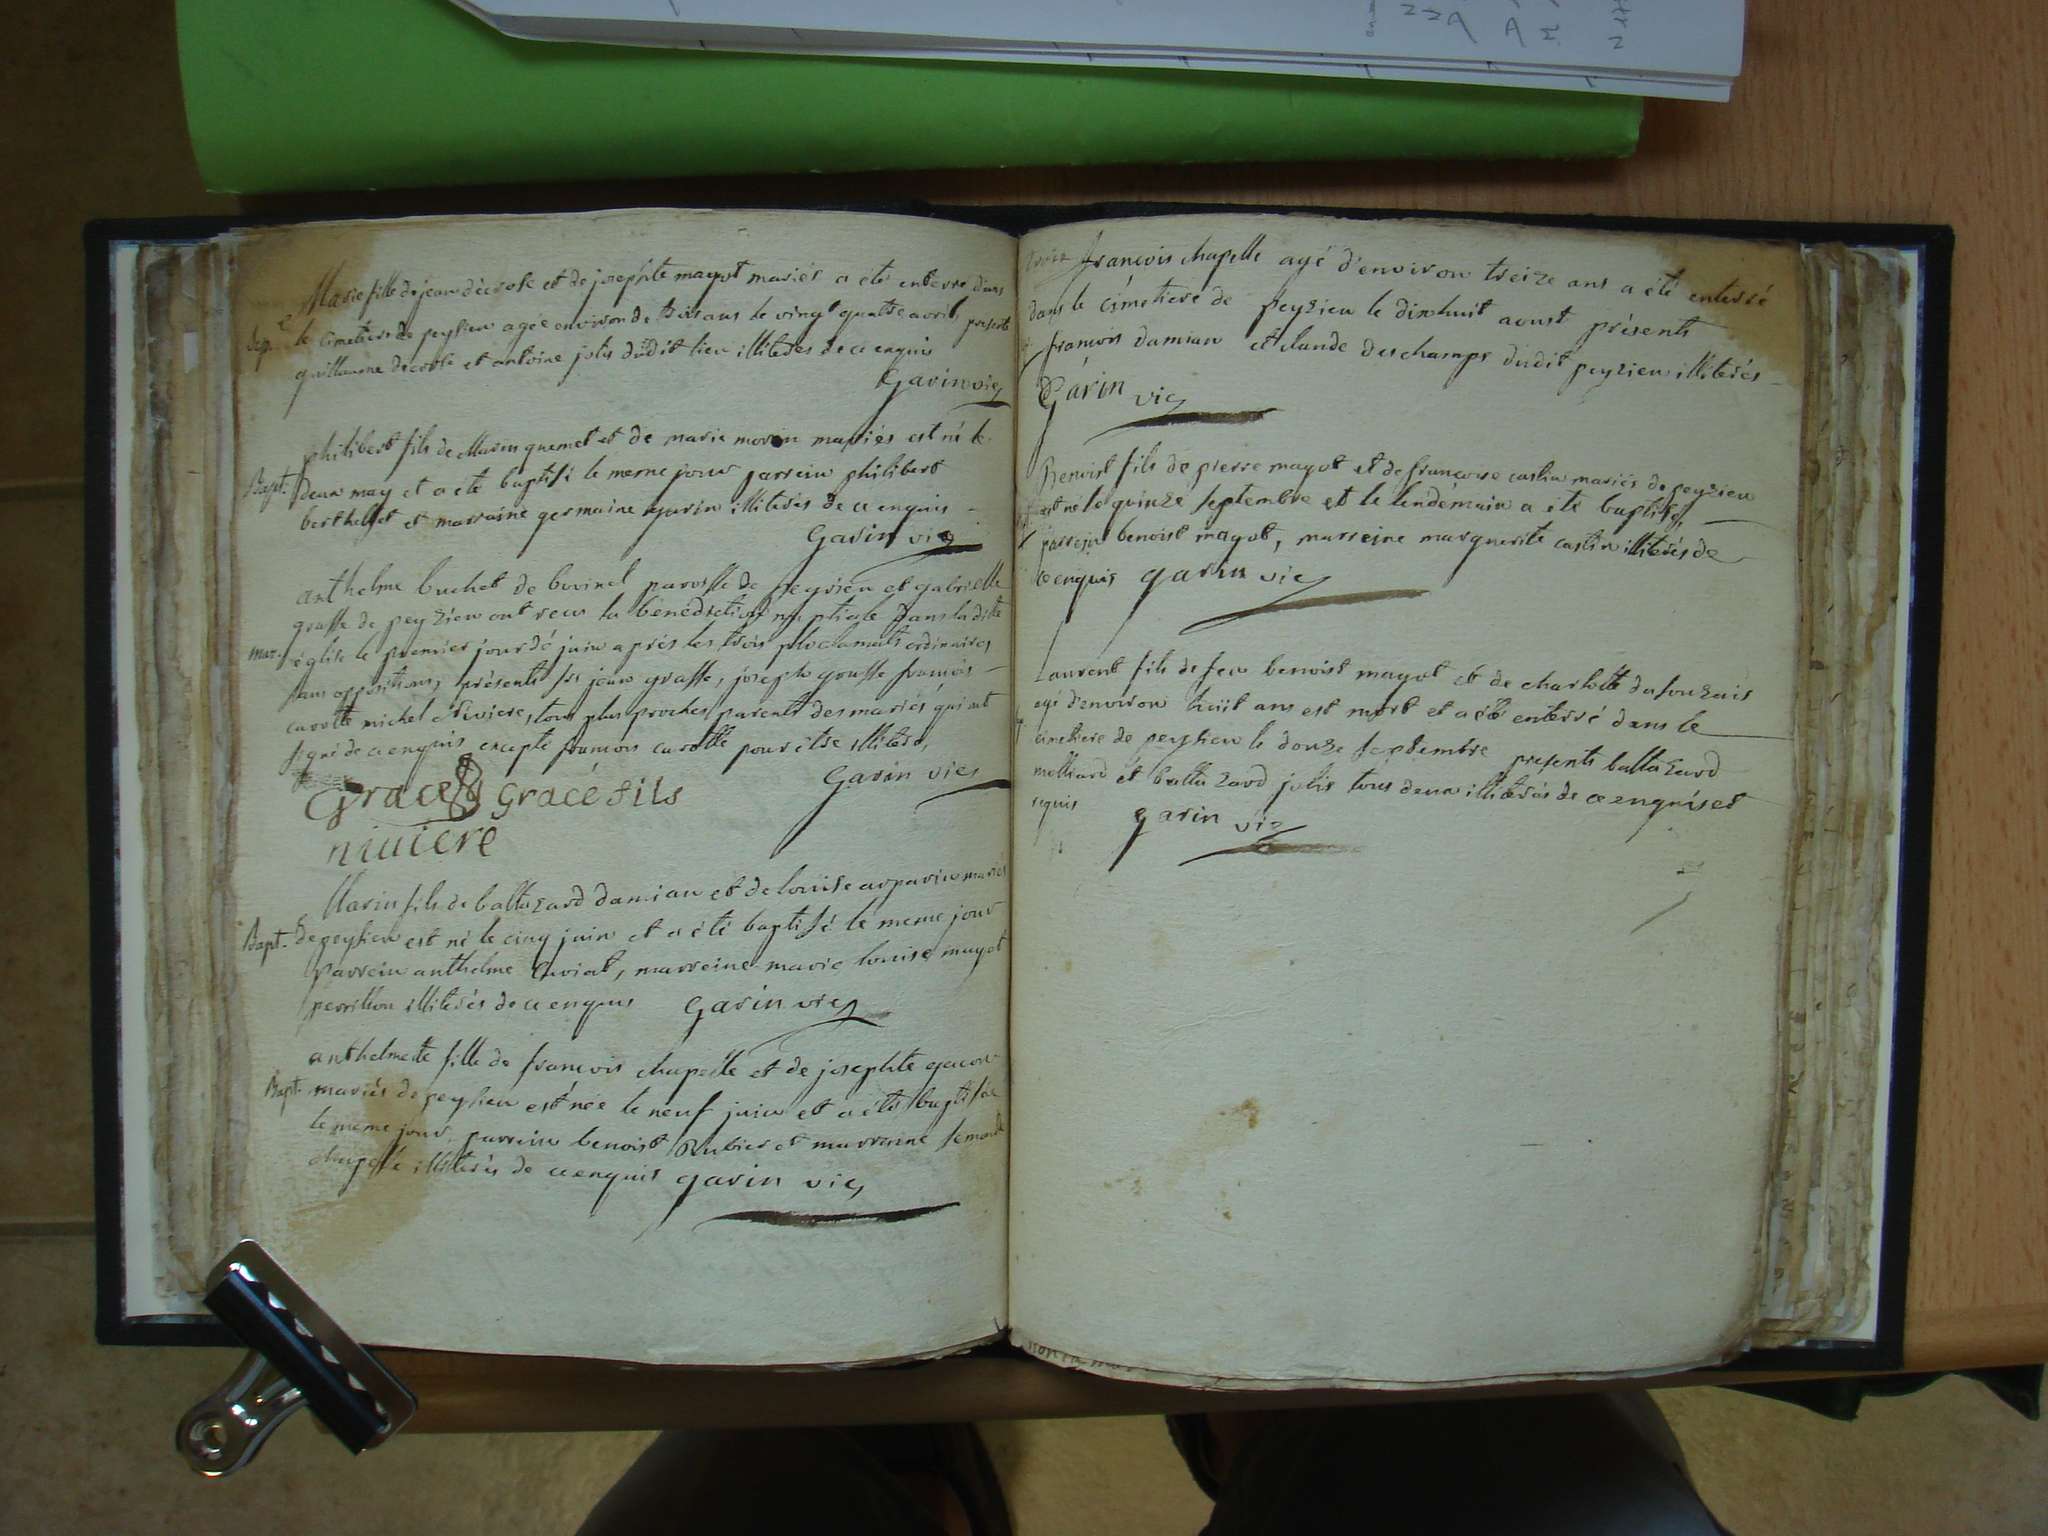 Marie fille de jean décrose et de josephte magot mariés a été enterré dans
Sep. le cimetière de peyzieu agée environ de trois ans le vingt quatre avril, presents
guillaume decrose et antoine jolis dudit lieu illiterés de ce enquis
Garin vic
philibert fils de Marin quemet et de marie morin mariés est né le
Bapt. deux may et a été baptisé le meme jour parrein philibert
berthelet et marraine germaine garin illiterés de ce enquis
Garin vic
anthelme buchet de bovinel paroisse de peyzieu et gabrielle
grasse de peyzieu ont recu la bénédiction nuptiale dans la dite
mar. église le premier jour de juin après les trois proclamats ordinaires
sans oppositions, présents jean grasse, joseph grasse françois
carotte michel Niviere, tous plus proches parents des mariés qui ont
signé de ce enquis excepté françois carotte pour être illiteré,
Garin vic
Grace Gracé fils
niuiere
Marin fils de baltazard damian et de louise arparin mariés
Bapt. de peyzieu est né le cinq juin et a été baptisé le meme jour
parrein anthelme caviat, marreine marie louise magot
perrillon illiterés de ce enquis Garin vic
anthelmette fille de francois chapelle et de josephte gacon
Bapt. mariés de peyzieu est née le neuf juin et a été baptisée
le meme jour, parrein benoist Rubier et marreine
chapelle illiterés de ce enquis garin vic
francois chapelle agé d'environ treize ans a été enterré
dans le cimetiere de peyzieu le dixhuit aoust présents
francois damian et claude deschamps dudit peyzieu illiterés
Garin vic
Benoist fils de pierre magot et de françoise castin mariés de peyzieu
est né le quinze septembre et le lendemain a été baptisé,
parrein benoist magot, marreine marguerite castin illiterés de
ce enquis garin vic
Laurent fils de feu benoist magot et de charlotte dufouzais
agé d'environ huit ans est mort et a été enterré dans le
cimetiere de peyzieu le douze septembre presents baltazard
molliard et baltazard jolis tous deux illiterés de ce enquis et
requis garin vic